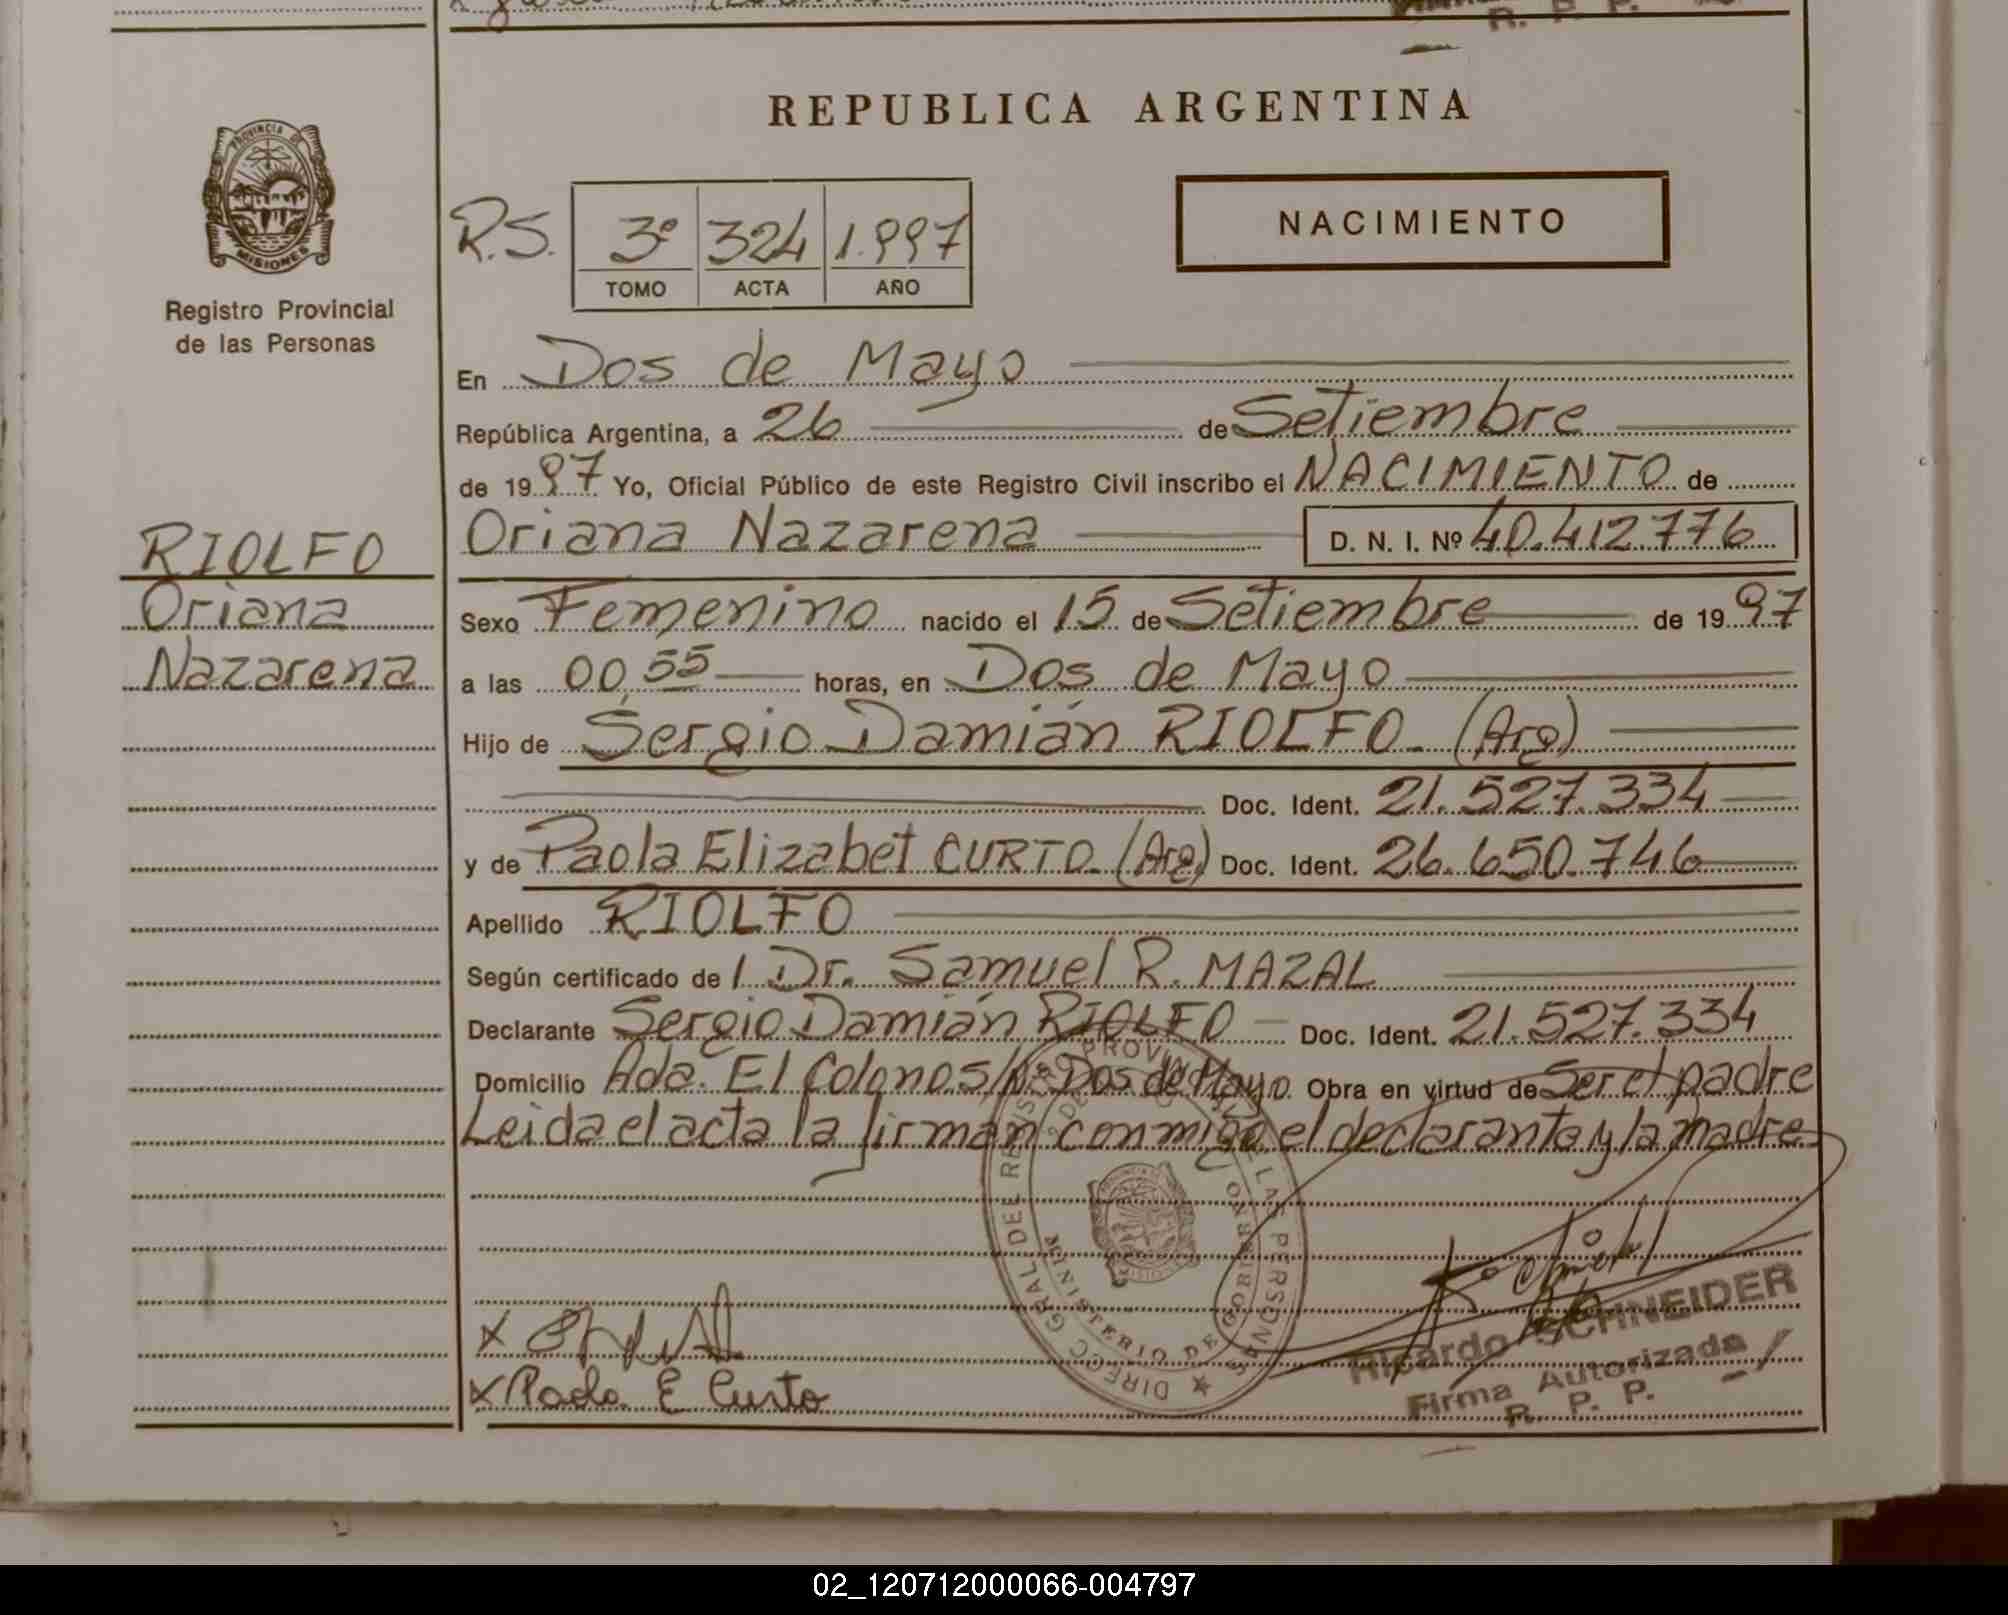 R. P. P.
REPUBLICA ARGENTINA
PROVINCIA DE
MISIONES
Registro Provincial
de las Personas
R.S. 3º 324 1.997
TOMO ACTA AÑO
NACIMIENTO
En Dos de Mayo
República Argentina, a 26 de Setiembre
de 1997 Yo, Oficial Público de este Registro Civil inscribo el NACIMIENTO de
RIOLFO
Oriana
Nazarena
Oriana Nazarena D. N. I. Nº 40.412.776
Sexo Femenino nacido el 15 de Setiembre de 1997
a las 00,55 horas, en Dos de Mayo
Hijo de Sergio Damián RIOLFO (Arg)
Doc. Ident. 21.527.334
y de Paola Elizabet CURTO (Arg) Doc. Ident. 26.650.746
Apellido RIOLFO
Según certificado de l Dr. Samuel R. MAZAL
Declarante Sergio Damián RIOLFO Doc. Ident. 21.527.334
Domicilio Ada. El Colono s/nº Dos de Mayo Obra en virtud de Ser el padre
Leida el acta la firman conmigo el declarante y la madre
DIREC. GRAL DEL REGISTRO PROVINCIAL DE LAS PERSONAS
MINISTERIO DE GOBIERNO
X
X Paola E Curto
Ricardo SCHNEIDER
Firma Autorizada
R. P. P.
02_120712000066-004797